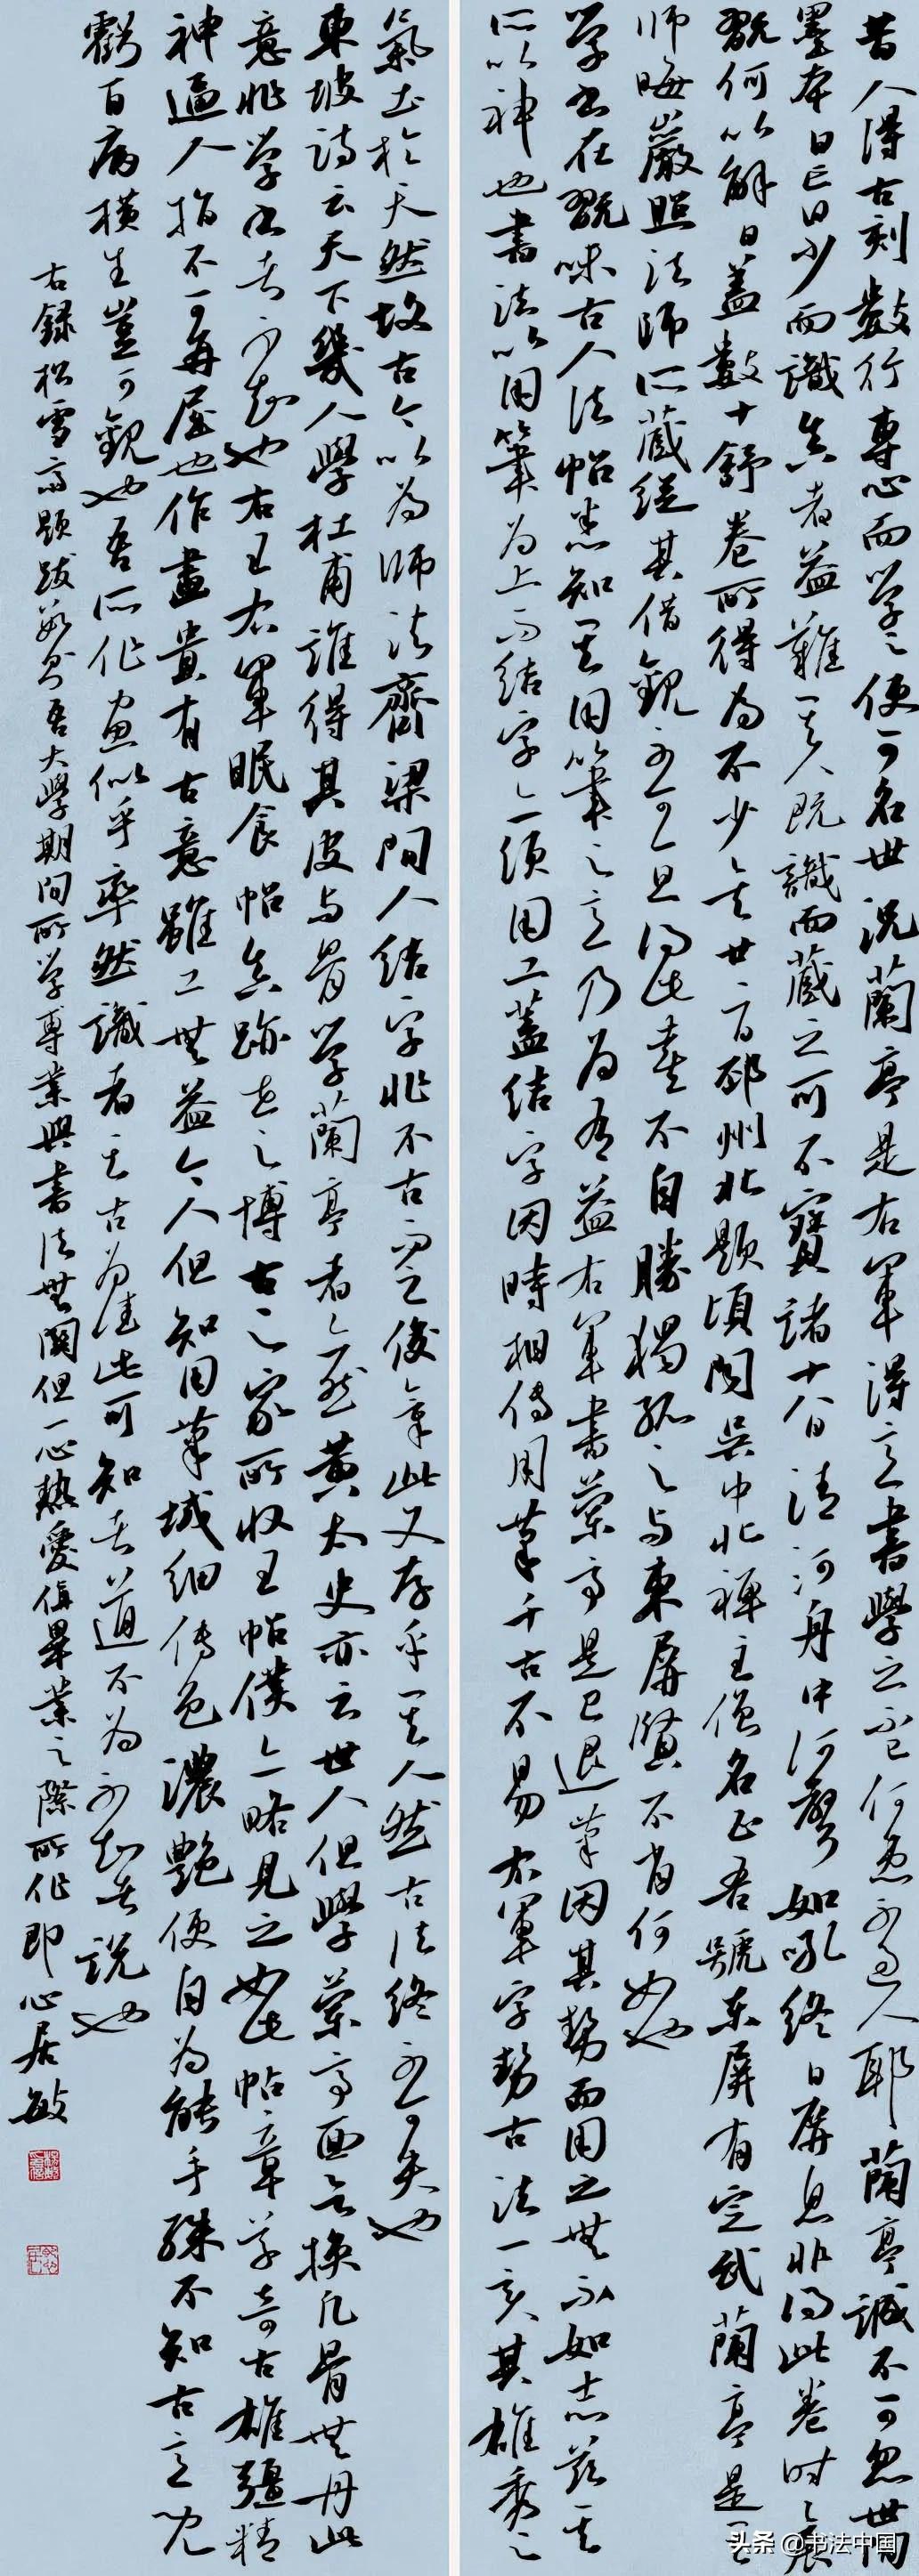 昔人得古刻數行專心而学之便可名世況蘭亭是右軍得意書學之不已何患不過人耶蘭亭誠不可忽世間
墨本日亡日少而識真者益難其人既識而藏之可不寶諸十八日清河舟中河聲如吼終日屏息非得此卷時時展
翫何以解日蓋數十舒卷所得為不少矣廿二日邳州北題頃聞吳中北禪主僧名正吾號東屏有定武蘭亭是其
师晦巖照法师所藏從其借觀不可一旦得此喜不自勝獨孤之与東屏賢不肖何如也
学书在翫味古人法帖悉知其用筆之意乃為有益右軍書蘭亭是已退筆因其勢而用之無不如志茲其
所以神也書法以用筆為上而结字亦須用工蓋结字因時相传用筆千古不易右軍字勢古法一变其雄秀之
氣出於天然故古今以為师法齊梁間人结字非不古而乏俊氣此又存乎其人然古法终不可失也
東坡詩云天下幾人學杜甫誰得其皮与骨学蘭亭者亦然黄太史亦云世人但學蘭亭面欲换凡骨無丹此
意非学书者不知也右王右軍眠食帖真跡去之博古之家所收王帖僕亦略見之如此帖章草奇古雄强精
神逼人指不可再屈也作畫貴有古意雖工無益今人但知用筆纖细傅色濃艷便自為能手殊不知古意既
虧百病横生豈可觀也吾所作画似乎率然識者知其古為佳此可知者道不為不知者說也
右録松雪斋題跋数则吾大學期間所学專業與書法無關但一心熱愛值畢業之際所作即心居敏
头条 @书法中国